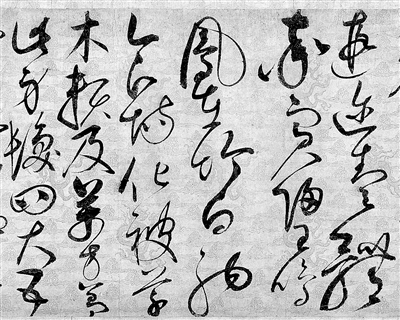 遐迩壹體
率賓歸王鳴
鳳在白駒
食場化被草
木賴及萬方蓋
此身髮四大五